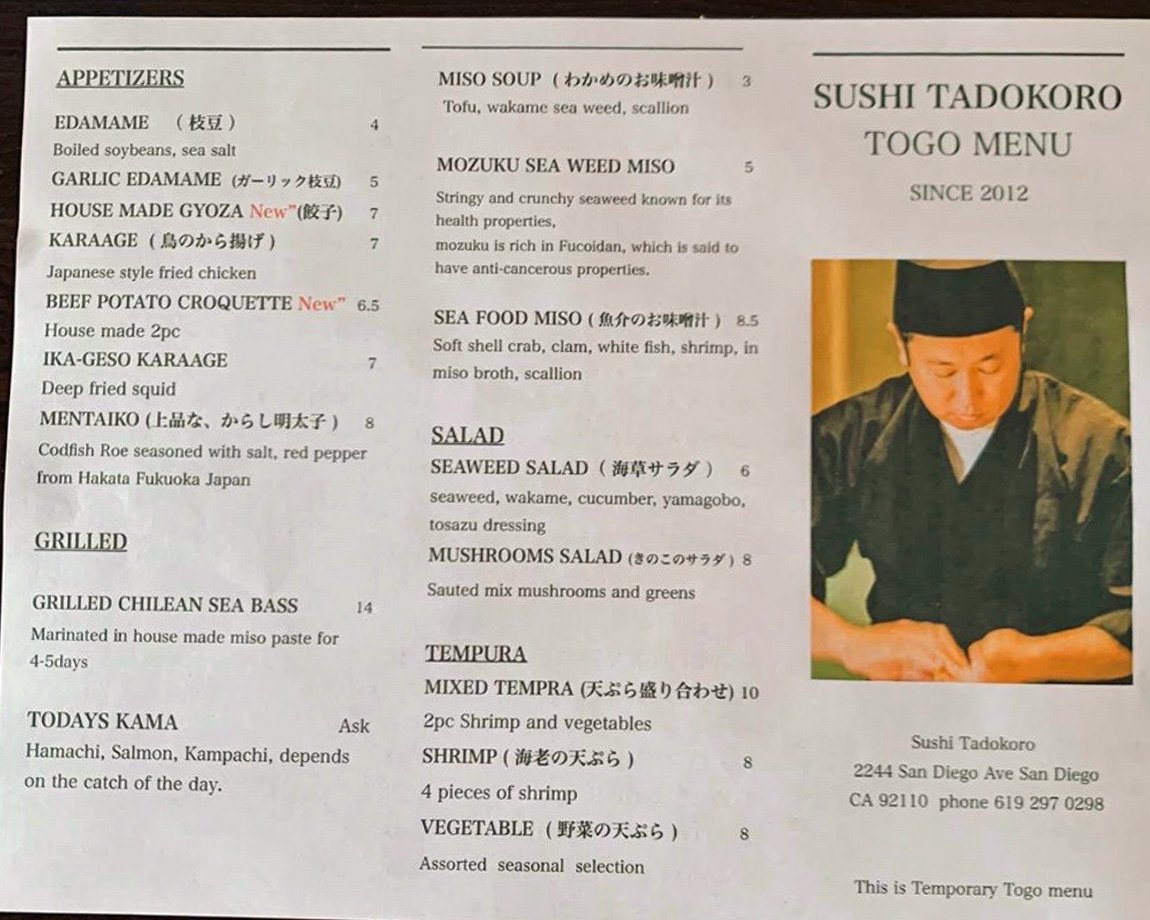 APPETIZERS
EDAMAME ( 枝豆 ) 4
Boiled soybeans, sea salt
GARLIC EDAMAME (ガーリック枝豆) 5
HOUSE MADE GYOZA New”(餃子) 7
KARAAGE ( 鳥のから揚げ ) 7
Japanese style fried chicken
BEEF POTATO CROQUETTE New” 6.5
House made 2pc
IKA-GESO KARAAGE 7
Deep fried squid
MENTAIKO (上品な、からし明太子 ) 8
Codfish Roe seasoned with salt, red pepper
from Hakata Fukuoka Japan
GRILLED
GRILLED CHILEAN SEA BASS 14
Marinated in house made miso paste for
4-5days
TODAYS KAMA Ask
Hamachi, Salmon, Kampachi, depends
on the catch of the day.
MISO SOUP ( わかめのお味噌汁 ) 3
Tofu, wakame sea weed, scallion
MOZUKU SEA WEED MISO 5
Stringy and crunchy seaweed known for its
health properties,
mozuku is rich in Fucoidan, which is said to
have anti-cancerous properties.
SEA FOOD MISO ( 魚介のお味噌汁 ) 8.5
Soft shell crab, clam, white fish, shrimp, in
miso broth, scallion
SALAD
SEAWEED SALAD ( 海草サラダ ) 6
seaweed, wakame, cucumber, yamagobo,
tosazu dressing
MUSHROOMS SALAD (きのこのサラダ ) 8
Sauted mix mushrooms and greens
TEMPURA
MIXED TEMPRA (天ぷら盛り合わせ) 10
2pc Shrimp and vegetables
SHRIMP ( 海老の天ぷら ) 8
4 pieces of shrimp
VEGETABLE ( 野菜の天ぷら ) 8
Assorted seasonal selection
SUSHI TADOKORO
TOGO MENU
SINCE 2012
Sushi Tadokoro
2244 San Diego Ave San Diego
CA 92110 phone 619 297 0298
This is Temporary Togo menu